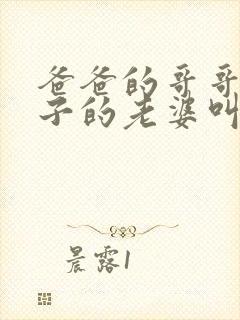 爸爸的哥哥
子的老婆叫
晨露1